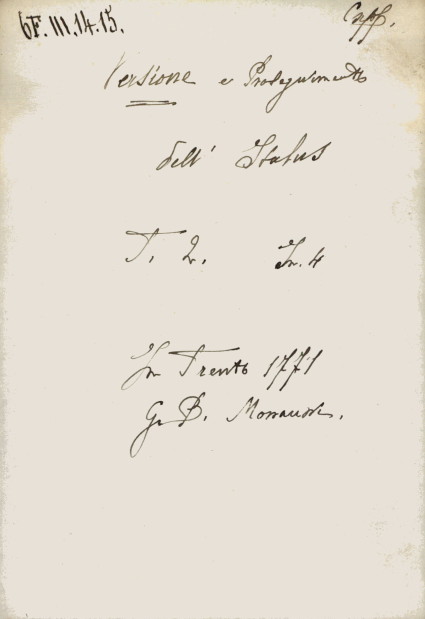 6F. III. 14. 15.
Capp.
Versione e Proseguimento
dell' Status
T. 2. In. 4
In Trento 1771
G. B. Monauni.